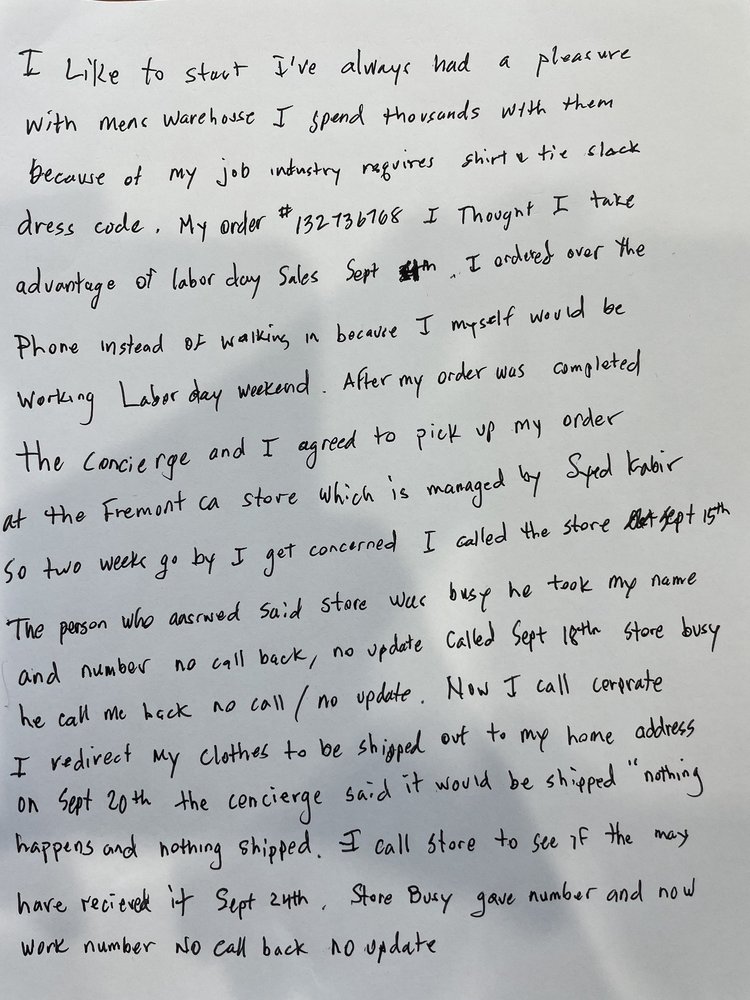 I Like to start I've always had a pleasure
with mens warehouse I spend thousands with them
because of my job industry requires shirt & tie slack
dress code. My order #132736768 I Thought I take
advantage of labor day Sales Sept 4th. I ordered over the
Phone instead of walking in because I myself would be
Working Labor day weekend. After my order was completed
the Concierge and I agreed to pick up my order
at the Fremont ca store which is managed by Syed Kabir
So two weeks go by I get concerned I called the store Sept 15th
The person who aasrwed said store was busy he took my name
and number no call back, no update Called Sept 18th store busy
he call me back no call / no update. Now I call cerprate
I redirect My clothes to be shipped out to my home address
on Sept 20th the cencierge said it would be shipped "nothing
happens and nothing shipped. I call store to see if the may
have recieved it Sept 24th. Store Busy gave number and now
work number No call back no update